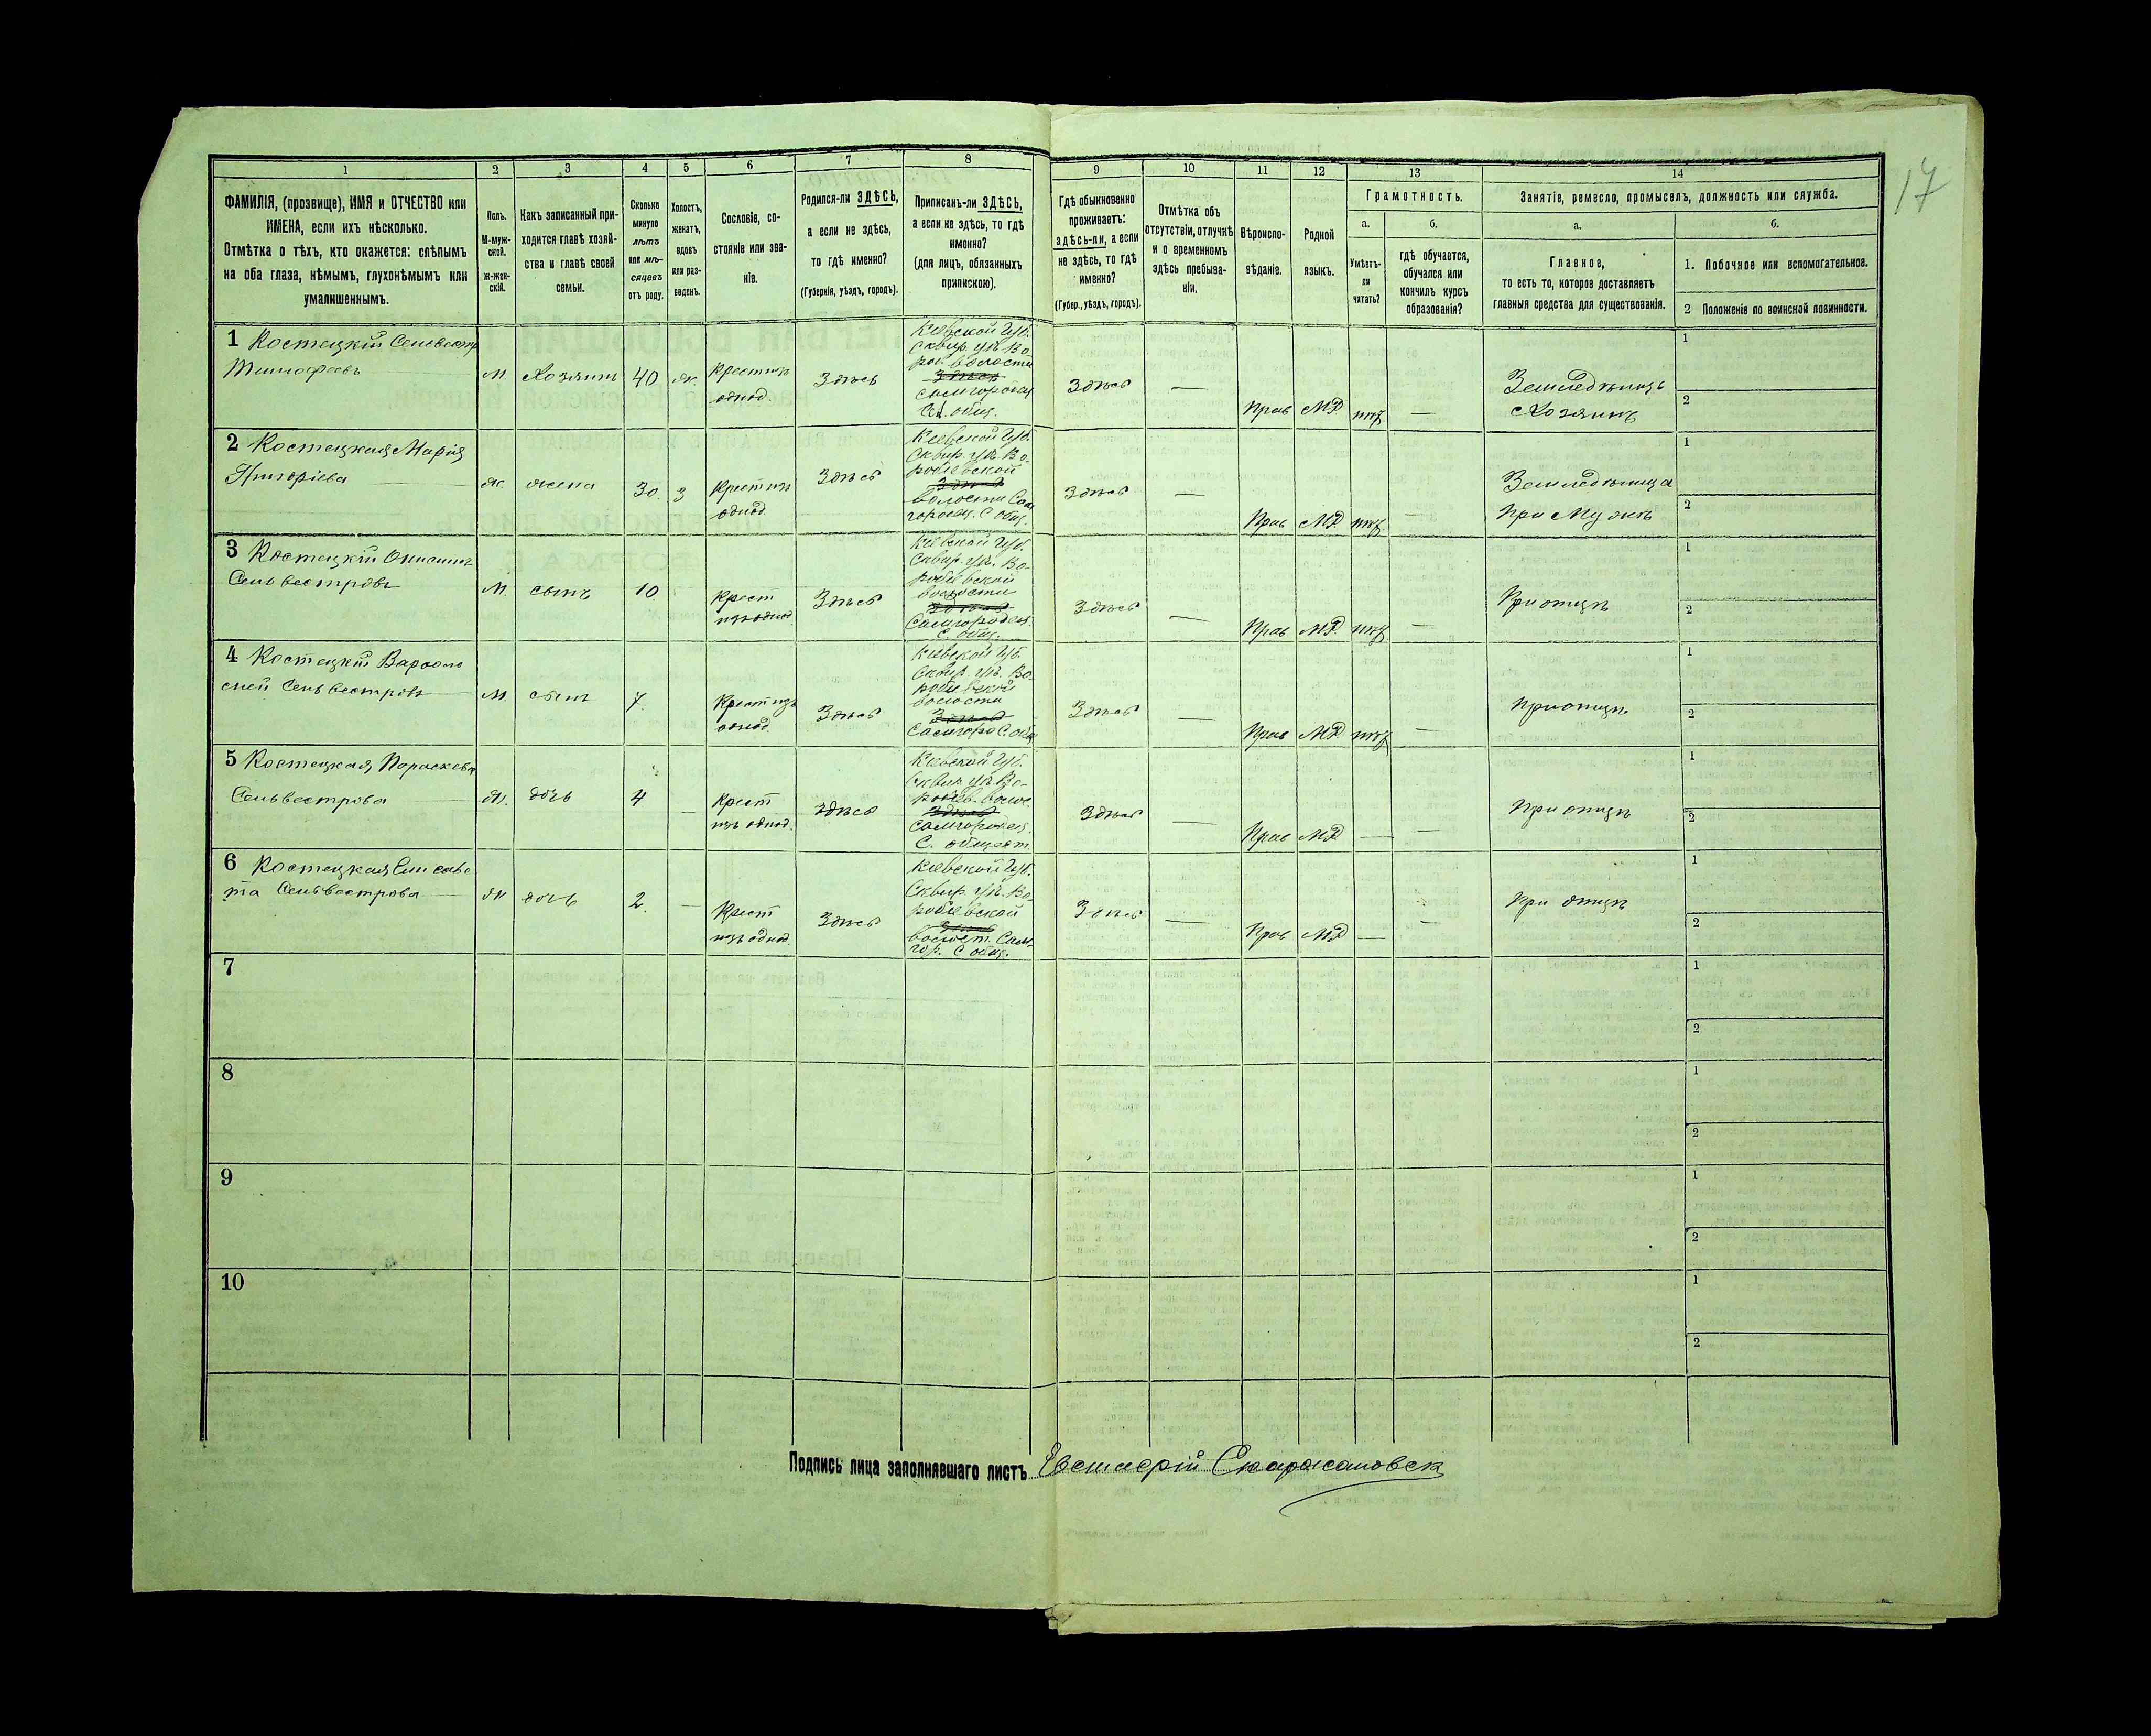 17
1 2 3 4 5 6 7 8 9 10 11 12 13 14
ФАМИЛІЯ, (прозвище), ИМЯ и ОТЧЕСТВО или
ИМЕНА, если ихъ нѣсколько.
Отмѣтка о тѣхъ, кто окажется: слѣпымъ
на оба глаза, нѣмымъ, глухонѣмымъ или
умалишеннымъ.
Полъ.
М-муж-
ской.
Ж-жен-
скій.
Какъ записанный при-
ходится главѣ хозяй-
ства и главѣ своей
семьи.
Сколько
минуло
лѣтъ
или мѣ-
сяцевъ
отъ роду.
Холостъ,
женатъ,
вдовъ
или раз-
веденъ.
Сословіе, со-
стояніе или зва-
ніе.
Родился-ли ЗДѢСЬ,
а если не здѣсь,
то гдѣ именно?
(Губернія, уѣздъ, городъ).
Приписанъ-ли ЗДѢСЬ,
а если не здѣсь, то гдѣ
именно?
(для лицъ, обязанныхъ
припискою).
Гдѣ обыкновенно
проживаетъ:
здѣсь-ли, а если
не здѣсь, то гдѣ
именно?
(Губер., уѣздъ, городъ).
Отмѣтка объ
отсутствіи, отлучкѣ
и о временномъ
здѣсь пребыва-
ніи.
Вѣроиспо-
вѣданіе.
Родной
языкъ.
Грамотность.
а.
Умѣетъ-
ли
читать?
б.
гдѣ обучается,
обучался или
кончилъ курсъ
образованія?
Занятіе, ремесло, промыселъ, должность или служба.
а.
Главное,
то есть то, которое доставляетъ
главныя средства для существованія.
б.
1. Побочное или вспомогательное.
2 Положеніе по воинской повинности.
1 Костецкій Сельвестр
Тимофеевъ
М. Хозяинъ 40 ж. Крест изъ
однод.
Здѣсь
Кіевской Губ.
Сквир. уѣз. Во-
роб. волости
Здѣсь
Самгородец
Сел. общ.
Здѣсь — Прав МР нѣт —
Земледѣлецъ
Хозяинъ
1
2
2 Костецкая Марія
Григоріева
ж жена 30 з Крест изъ
однод.
Здѣсь
Кіевской Губ.
Сквир. уѣз. Во-
робіевской
Здѣсь
волости Сам
городец. С общ.
Здѣсь — Прав МР. нѣт —
Земледѣлица
При Мужѣ
1
2
3 Костецкій
Сельвестровъ
М. сынъ 10 Крест
изъ однод.
Здѣсь
Кіевской Губ.
Сквир. уѣз. Во-
робіевской
волости
Здѣсь
Самгородец.
С. общ.
Здѣсь — Прав МР. нѣт —
При отцѣ
1
2
4 Костецкій Варфоло
мей Сельвестровъ
М. сынъ 7. Крест изъ
однод.
Здѣсь
Кіевской Губ
Сквир. уѣз. Во
робіевской
волости
Здѣсь
Самгоро С общ
Здѣсь — Прав МР нѣт —
При отцѣ
1
2
5 Костецкая Параскева
Сельвестрова
Ж. дочь 4 — Крест
изъ однод.
Здѣсь
Кіевской Губ.
Сквир уѣз Во-
робіев. волос
Здѣсь
Самгородец.
С. общест.
Здѣсь — Прав МР — —
При отцѣ
1
2
6 Костецкая Елисаве
та Сельвестрова
Ж дочь 2. — Крест
изъ однод.
Здѣсь
Кіевской Губ.
Сквир уѣз. Во-
робіевской
Здѣсь
волост. Сам-
гор. С общ.
Здѣсь — Прав МР — —
При отцѣ
1
2
7
1
2
8
1
2
9
1
2
10
1
2
Подпись лица заполнявшаго листъ